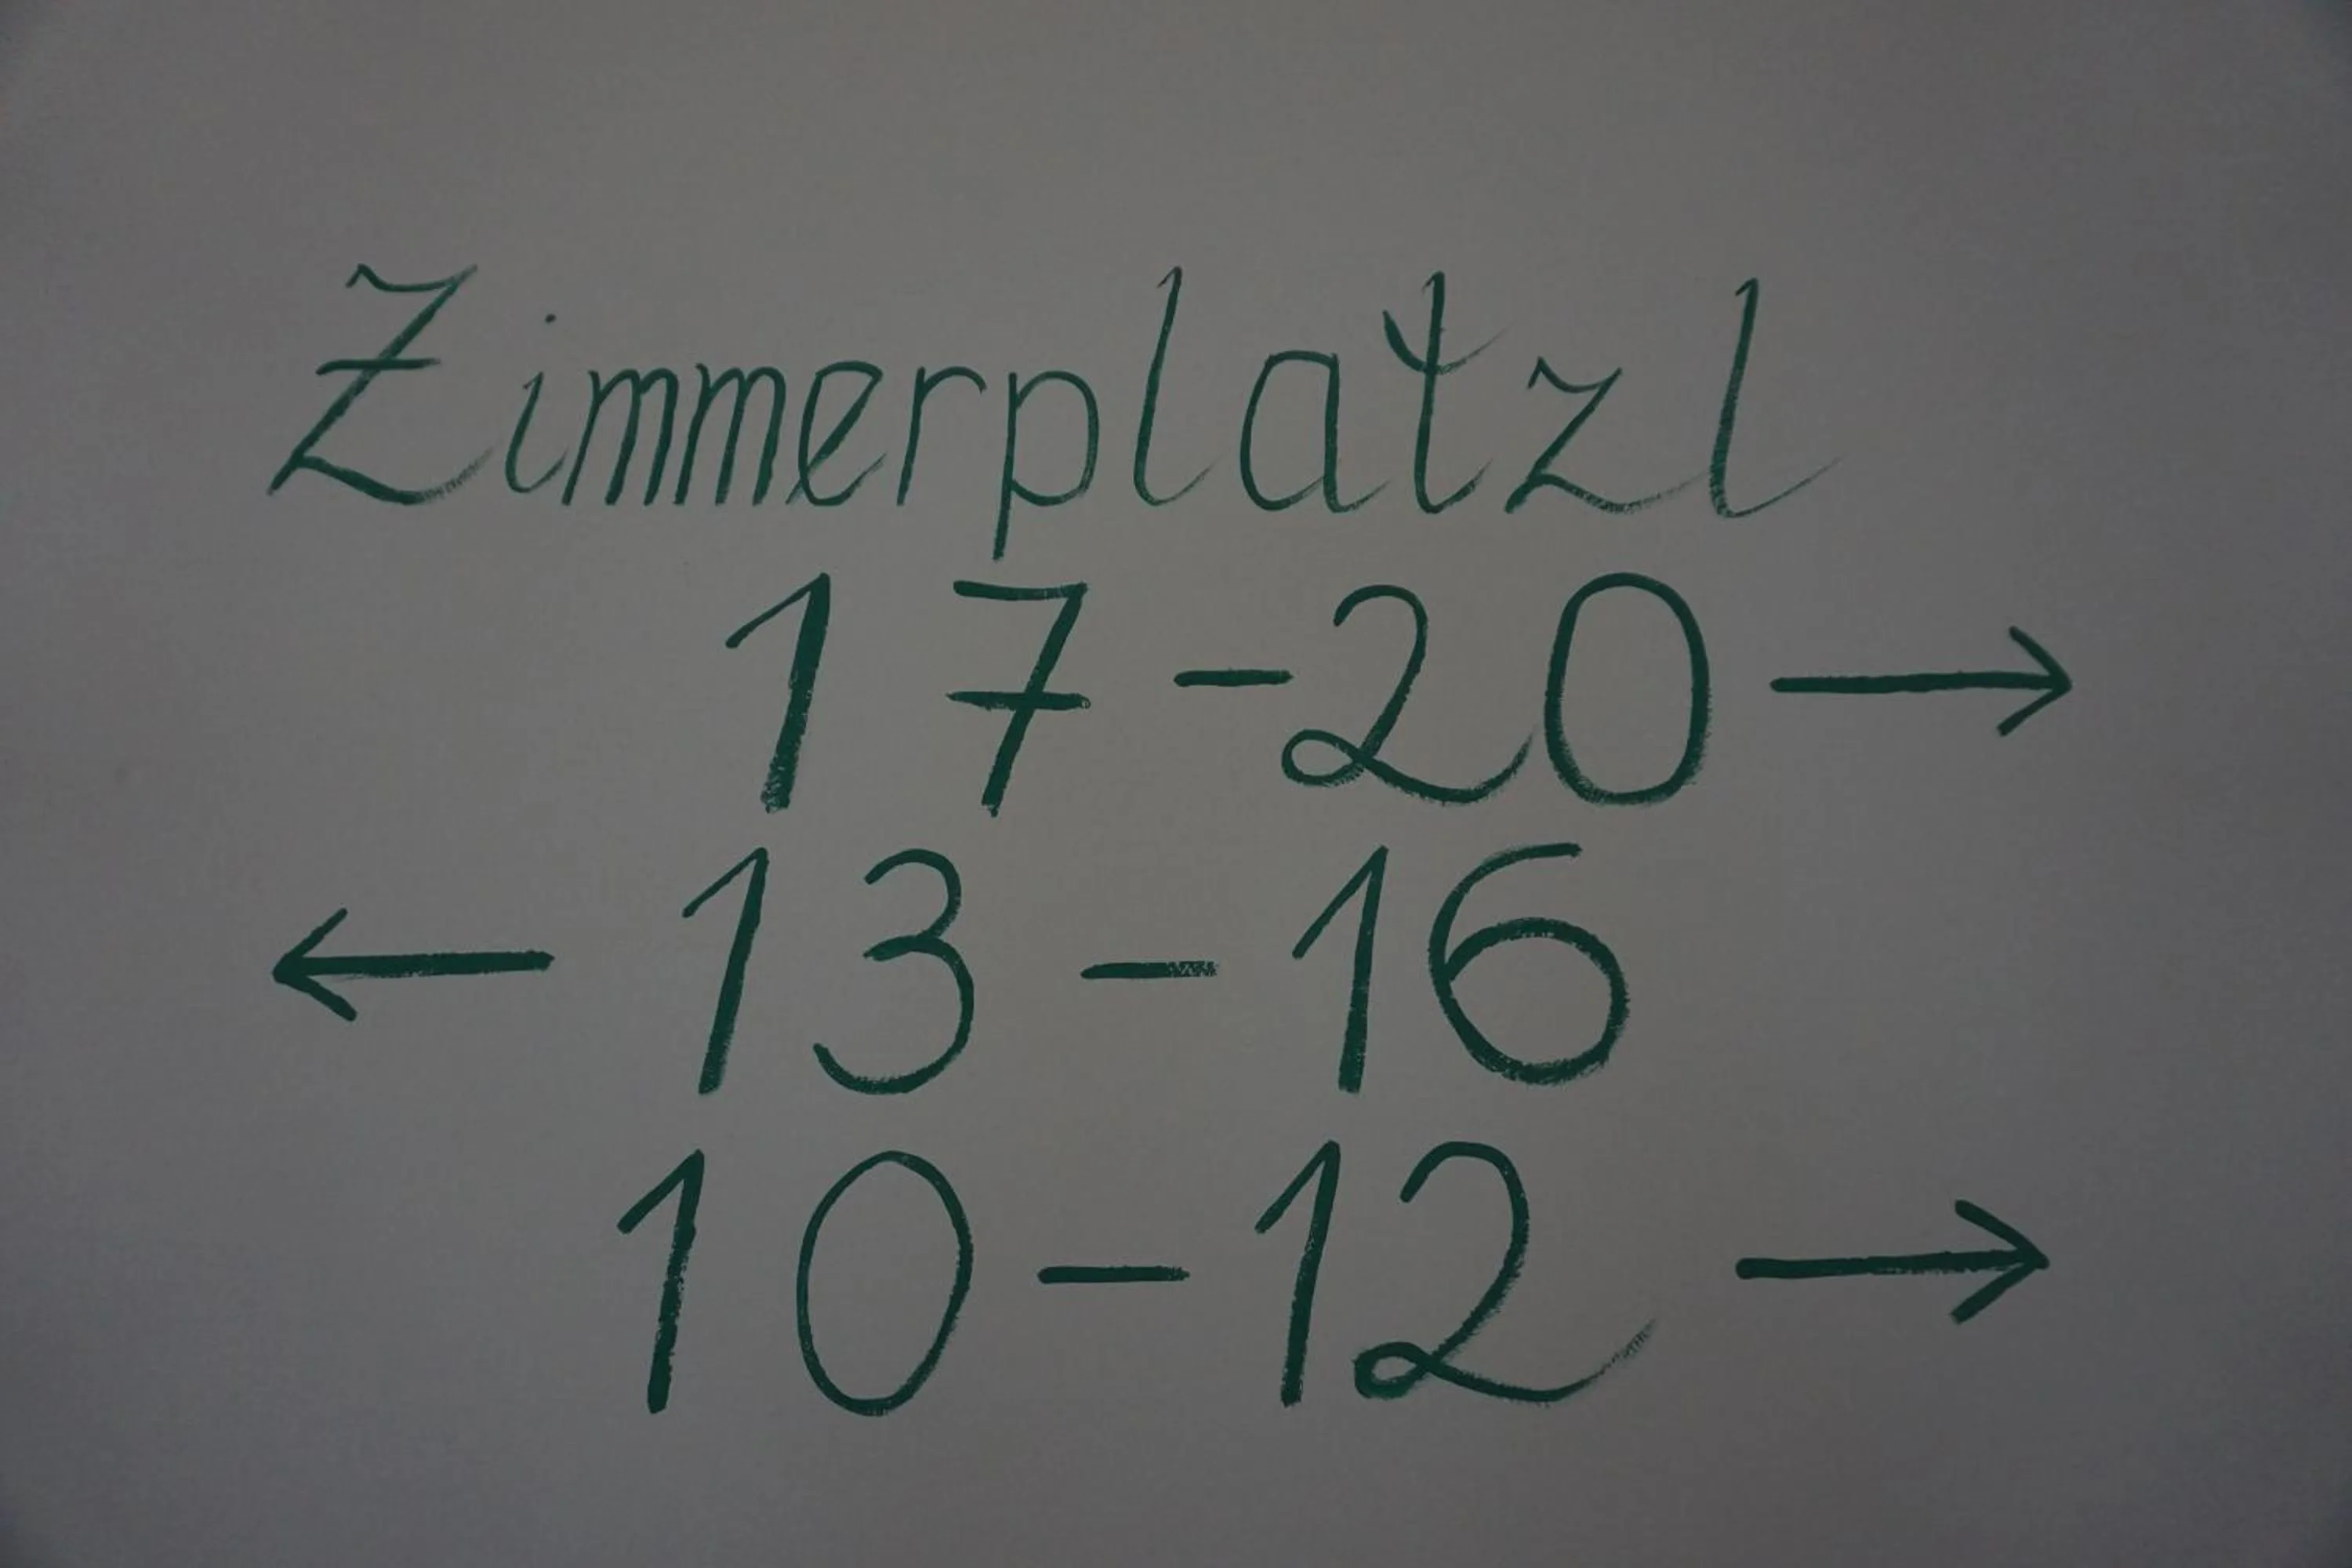 Zimmerplatzl
17-20 →
← 13-16
10-12 →